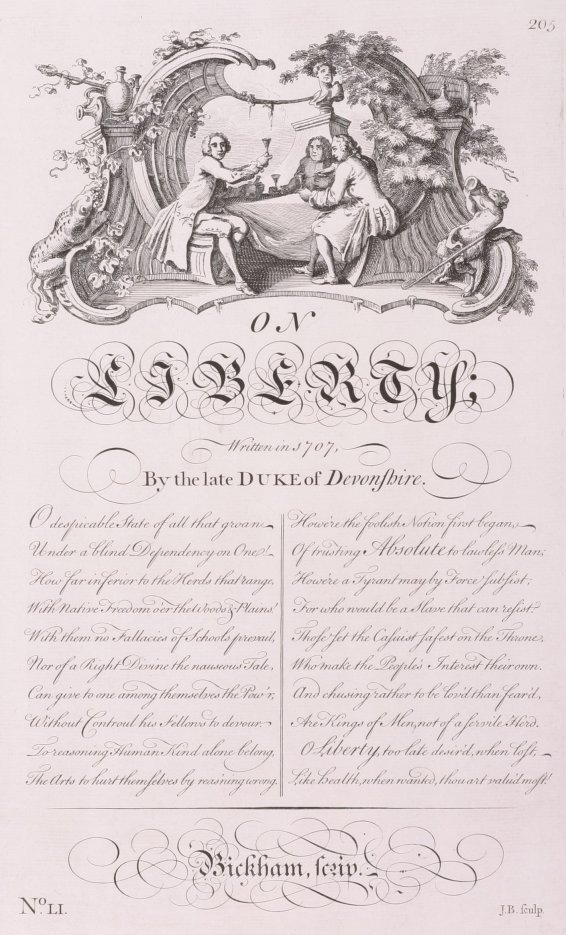 205
ON
LIBERTY;
Written in 1707,
By the late DUKE of Devonſhire.
O deſpicable State of all that groan
Under a blind Dependency on One!
How far inferior to the Herds that range,
With Native Freedom o'er the Woods & Plains!
With them no Fallacies of Schools prevail,
Nor of a Right Divine the nauseous Tale,
Can give to one among themſelves the Pow'r,
Without Controul his Fellows to devour.
To reasoning Human Kind alone belong,
The Arts to hurt themſelves by reas'ning wrong.
Howe're the fooliſh Notion first began,
Of truſting Absolute to lawleſs Man;
Howe're a Tyrant may by Force ſubſist,
For who would be a Slave that can reſist?
Thoſe ſet the Caſuist ſafest on the Throne,
Who make the People's Interest their own.
And chusing rather to be lov'd than fear'd,
Are Kings of Men, not of a ſervile Herd.
O Liberty, too late deſir'd, when lost,
Like health, when wanted, thou art valu'd most!
Bickham, ſcriv.
No. LI.
J.B. ſculp.